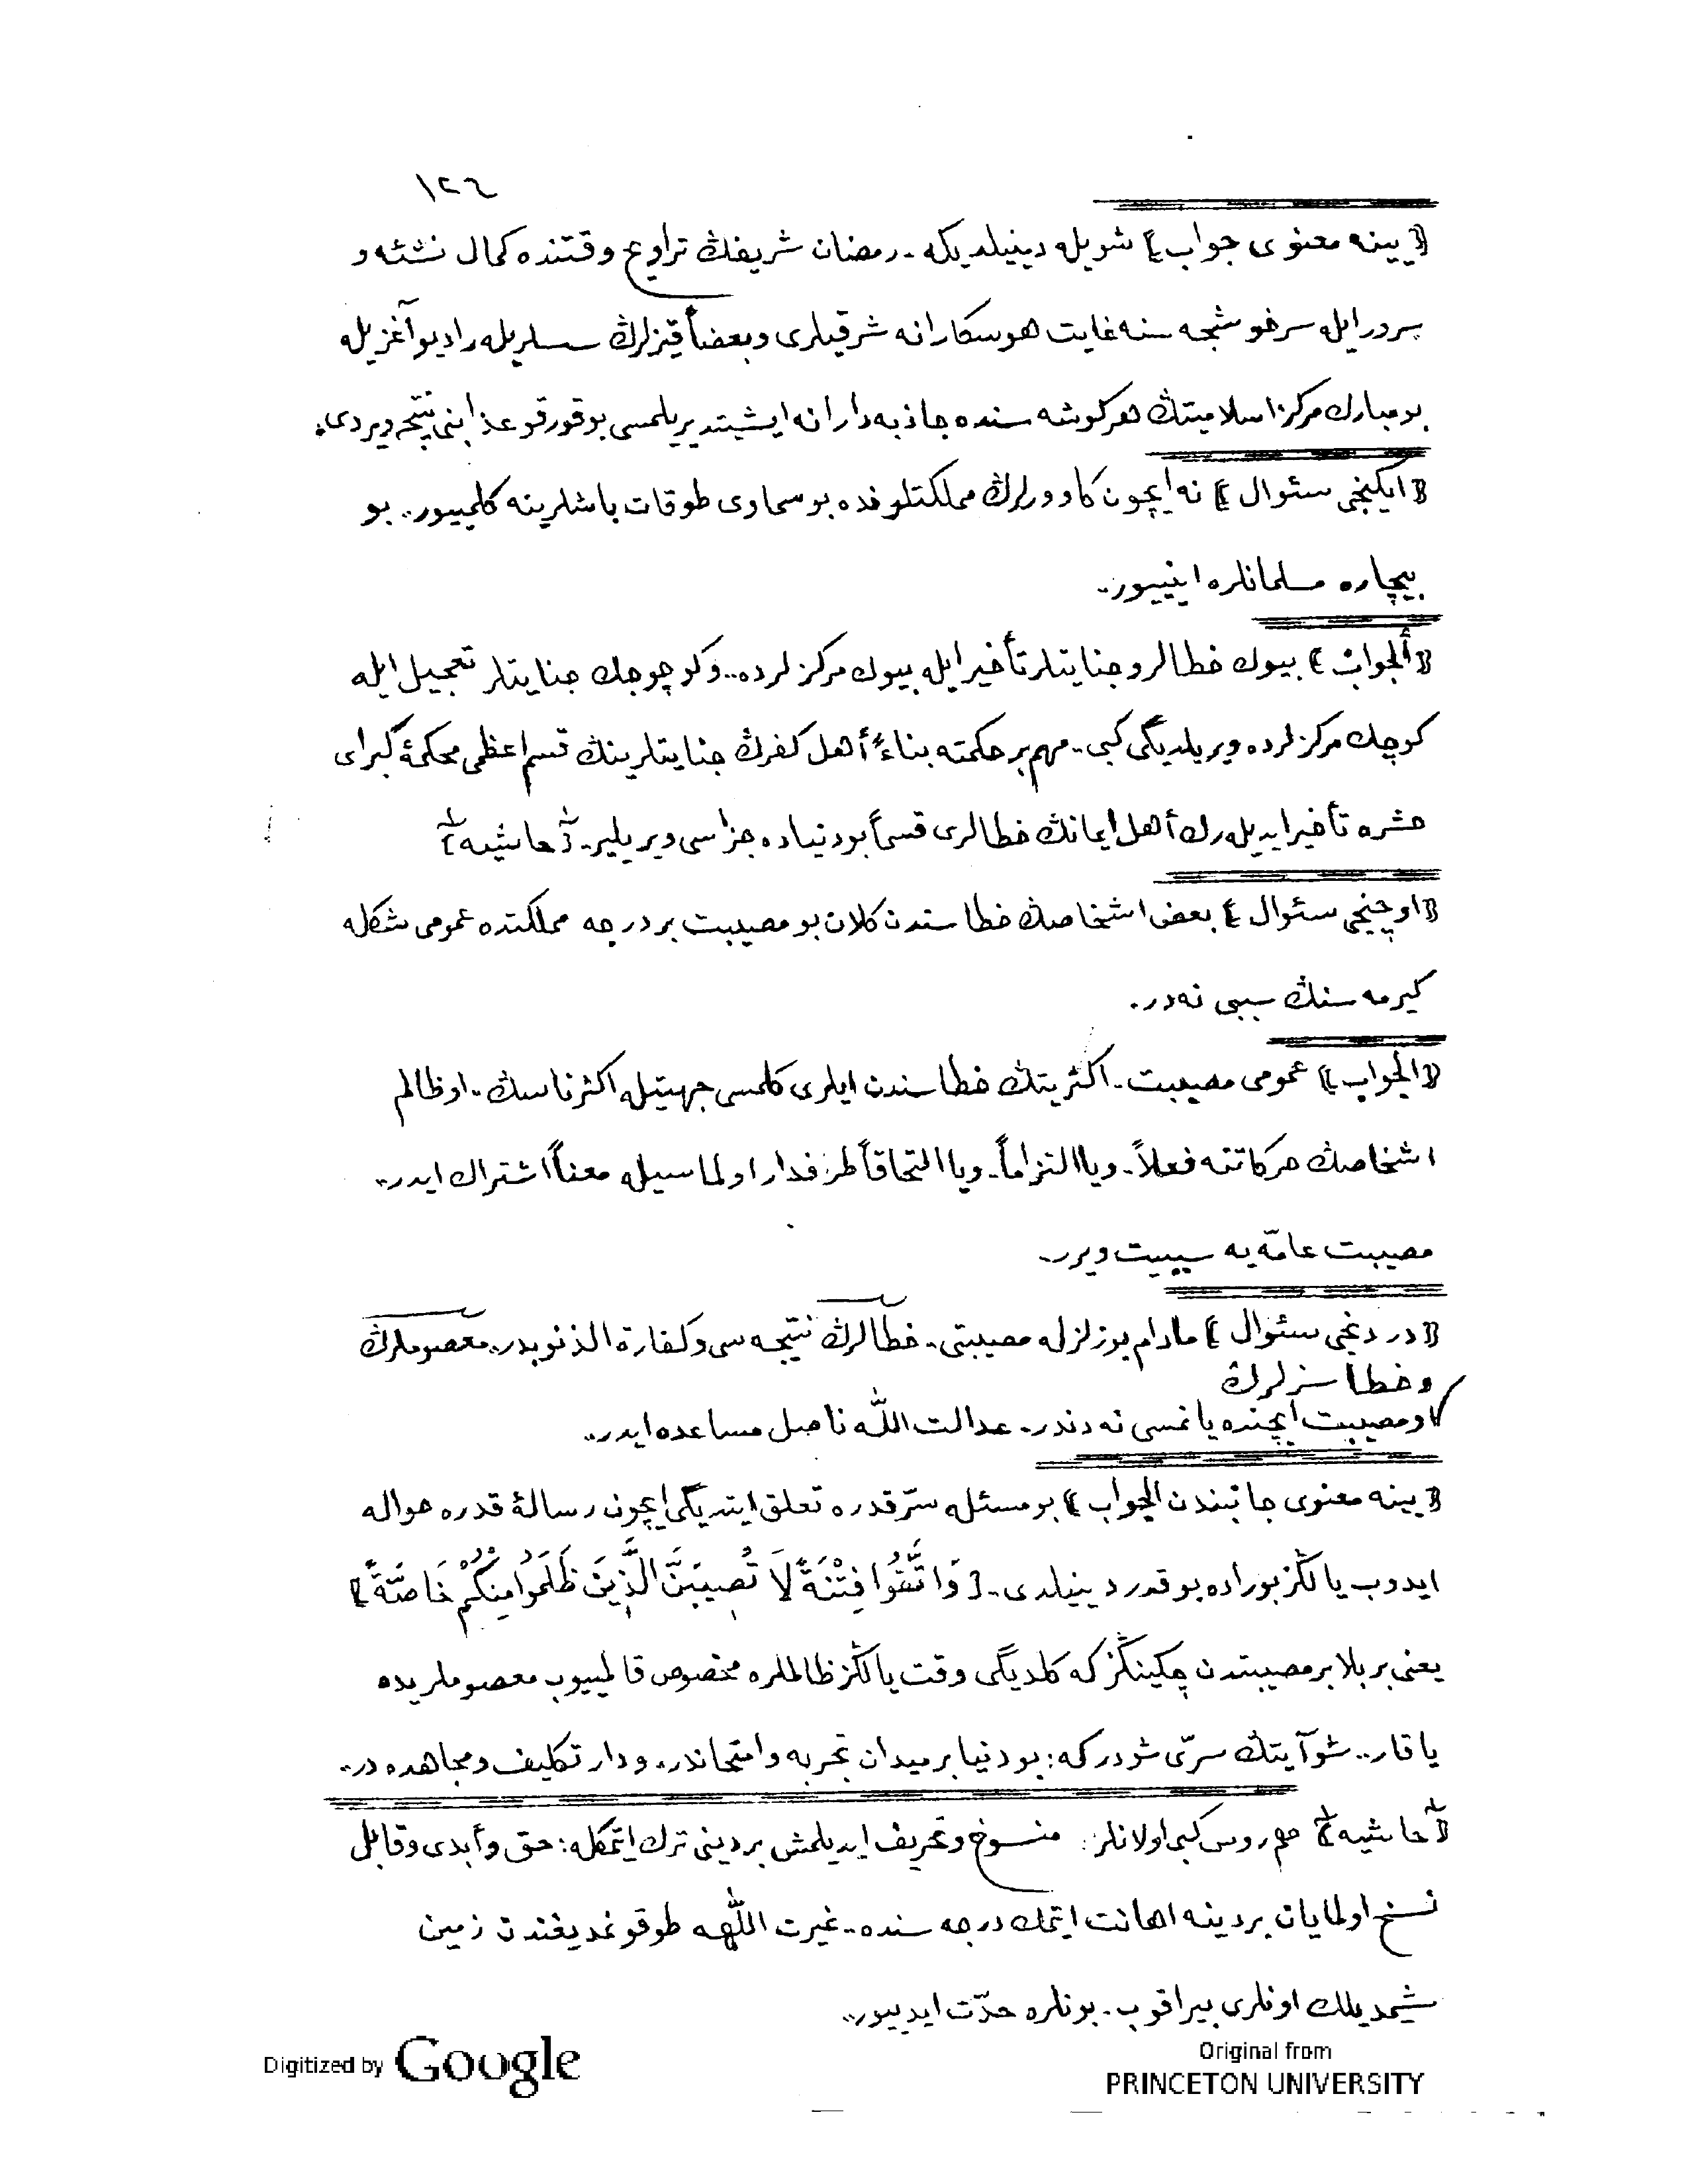 ١٢٦
﴿ يينه معنوى جواب ﴾ شويله دينيلديكه. رمضان شريفڭ تراويح وقتنده كمال نشئه و
سرور ايله سرخوشجه سنه غايت هوسكارانه شرقيلرى وبعضاً قيزلرڭ سسلريله راديو آغزيله
بو مبارك مركز اسلاميتڭ هر كوشه سنده جاذبه دارانه ايشيتديريلمسى بو قورقو عذابنى نتيجه ويردى.
﴿ ايكينجى سئوال ﴾ نه ايچون كاوورلرڭ مملكتلرنده بو سماوى طوقات باشلرينه كلمييور.. بو
بيچاره مسلمانلره اينييور..
﴿ ألجواب ﴾ بيوك خطالر و جنايتلر تأخير ايله بيوك مركزلرده.. و كوچوجك جنايتلر تعجيل ايله
كوچك مركزلرده ويريلديگى كبى. مهم بر حكمته بناءً أهل كفرڭ جنايتلرينڭ قسم اعظمى محكمۀ كبراى
حشره تأخير ايديله رك أهل ايمانڭ خطالرى قسماً بو دنياده جزاسى ويريلير. ﴿حاشيه١﴾
﴿ اوچنجى سئوال ﴾ بعض اشخاصڭ خطاسندن كلان بو مصيبت بر درجه مملكتده عمومى شكله
كيرمه سنڭ سببى نه در.
﴿ الجواب ﴾ عمومى مصيبت. اكثريتڭ خطاسندن ايلرى كلمسى جهتيله اكثر ناسڭ. او ظالم
اشخاصڭ حركاتنه فعلاً. ويا التزاماً. ويا التحاقاً طرفدار اولماسيله معناً اشتراك ايدر..
مصيبت عامّه يه سببيت ويرر.
﴿ دردنجى سئوال ﴾ مادام بو زلزله مصيبتى. خطالرڭ نتيجه سى و كفارة الذنوبدر. معصوملرڭ
و خطاسزلرڭ
او مصيبت ايچنده يانمسى نه دندر. عدالت اللّٰه ناصل مساعده ايدر..
﴿ يينه معنوى جانبندن الجواب ﴾ بو مسئله سرّ قدره تعلق ايتديگى ايچون رسالۀ قدره حواله
ايدوب يالڭز بوراده بو قدر دينيلدى. ﴿ وَاتَّقُوا فِتْنَةً لَا تُصِيبَنَّ الَّذِينَ ظَلَمُوا مِنْكُمْ خَاصَّةً ﴾
يعنى بر بلا بر مصيبتدن چكينڭز كه كلديگى وقت يالڭز ظالملره مخصوص قالمييوب معصوملريده
ياقار.. شو آيتڭ سرّى شودر كه: بو دنيا بر ميدان تجربه و امتحاندر. و دار تكليف و مجاهده در..
﴿حاشيه١﴾ هم روس كبى اولانلر: منسوخ و تحريف ايديلمش بر دينى ترك ايتمكله: حق و أبدى و قابل
نسخ اولمايان بر دينه اهانت ايتمك درجه سنده.. غيرت اللّٰهه طوقونمديغندن زمين
شيمديلك اونلرى بيراقوب. بونلره حدّت ايدييور..
Digitized by Google
Original from
PRINCETON UNIVERSITY